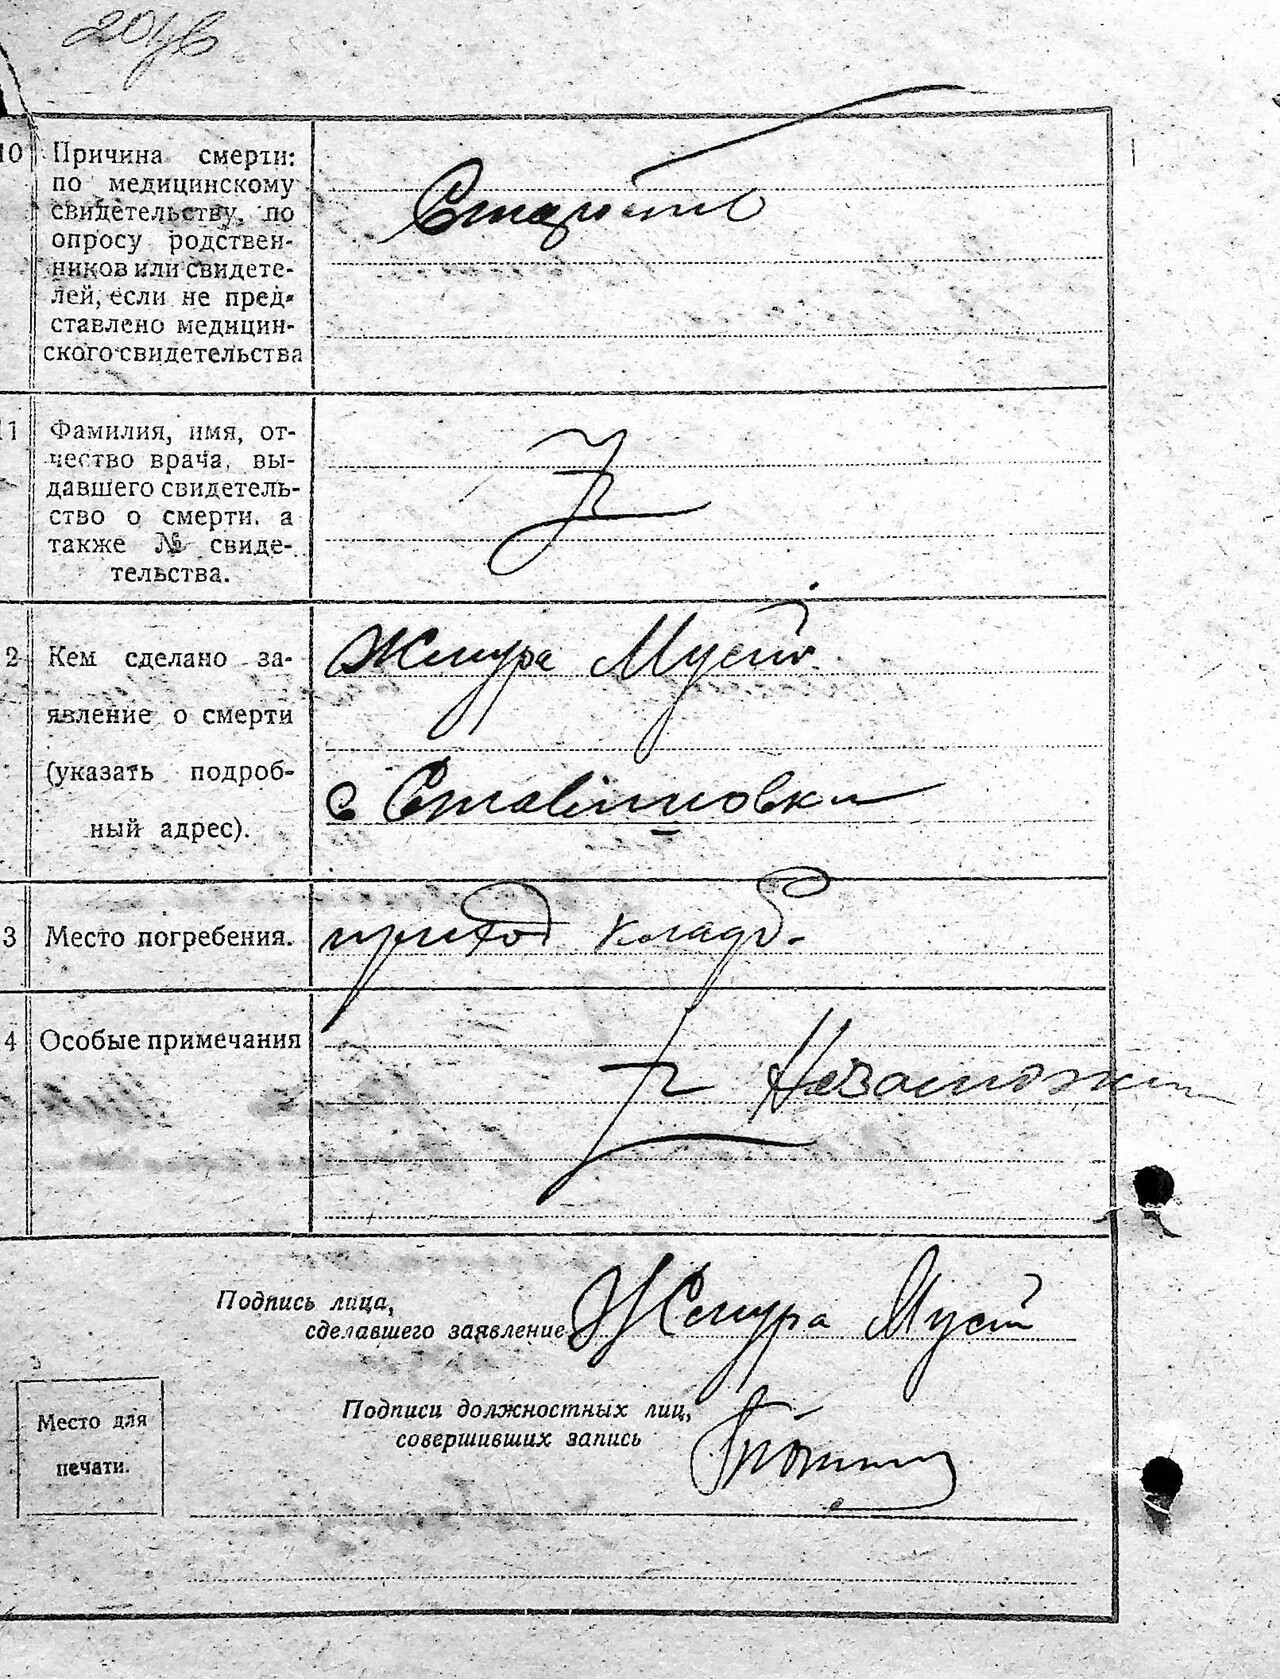 10 Причина смерти:
по медицинскому
свидетельству, по
опросу родствен-
ников или свидете-
лей, если не пред-
ставлено медицин-
ского свидетельства
Старость
11 Фамилия, имя, от-
чество врача, вы-
давшего свидетель-
ство о смерти, а
также № свиде-
тельства.
2 Кем сделано за-
явление о смерти
(указать подроб-
ный адрес).
Жмура Мусій
с Ставиновки
3 Место погребения.
приход кладб.
4 Особые примечания
Незаможн
Подпись лица,
сделавшего заявление Жмура Мусій
Подписи должностных лиц,
совершивших запись
Место для
печати.